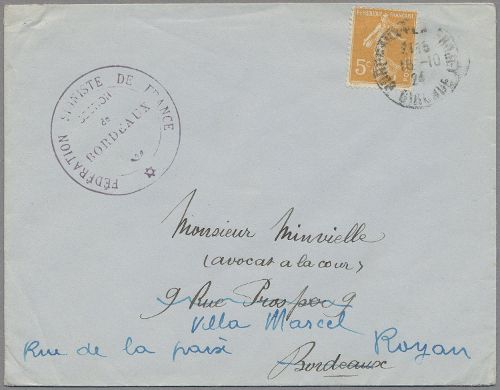 RÉPUBLIQUE FRANÇAISE
5c
18 -10
24
GIRONDE
FÉDÉRATION SIONISTE DE FRANCE
SECTION
de
BORDEAUX
Monsieur Minvielle
(avocat a la cour)
9 Rue
Villa Marcel
Rue de la paix Royan
Bordeaux